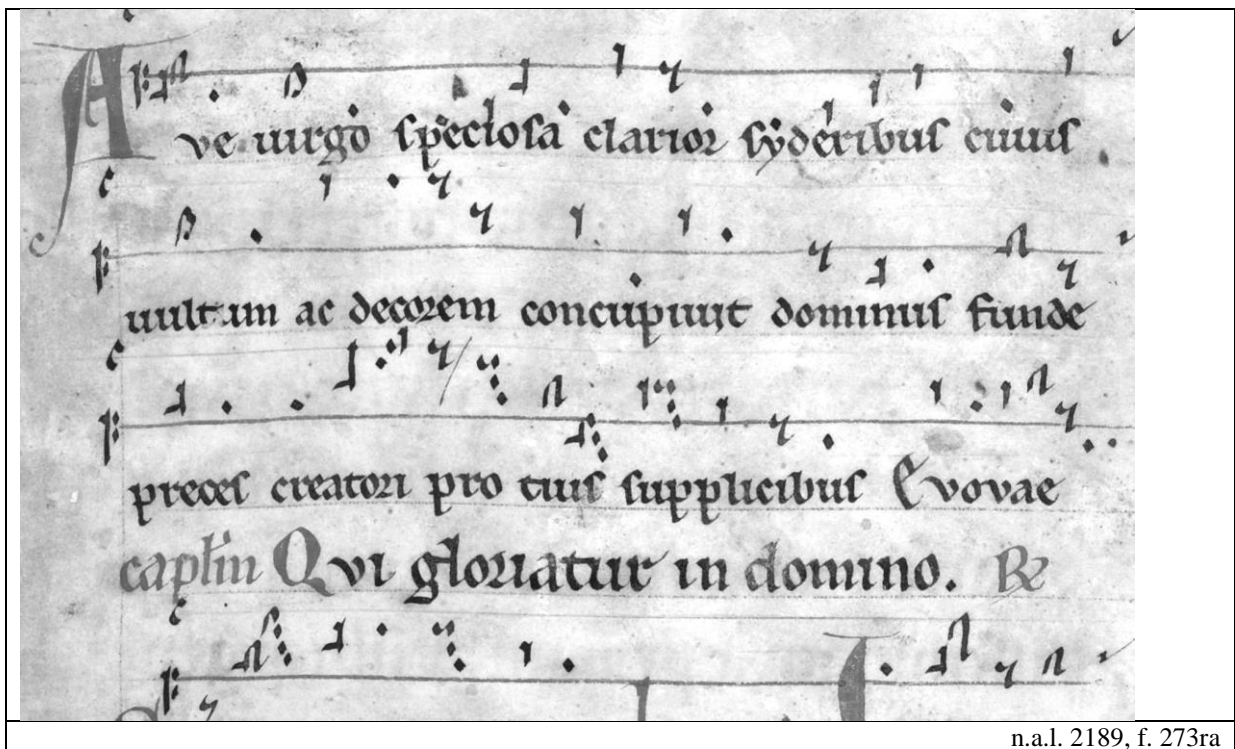 Ave uirgo speciosa clarior syderibus cuius
uultum ac decorem concupiuit dominus funde
preces creatori pro tuis supplicibus Evovae
capl'm Qui gloriatur in domino. R
n.a.l. 2189, f. 273ra